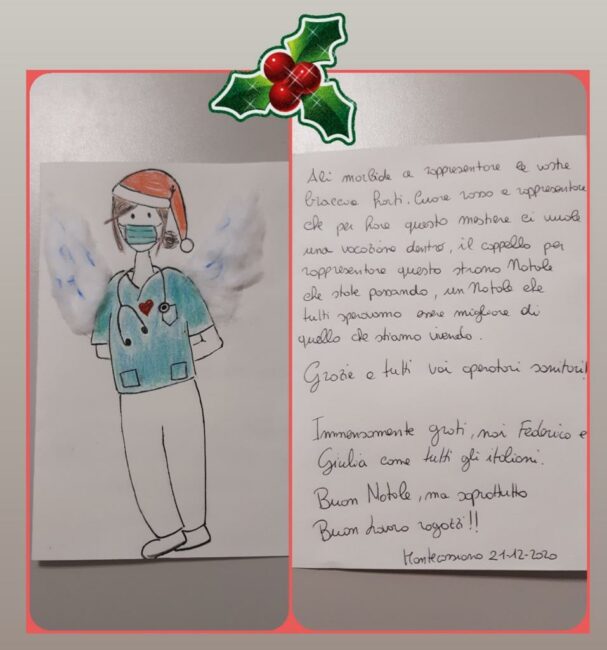 Ali morbide a rappresentare le vostre
braccia forti. Cuore rosso a rappresentare
che per fare questo mestiere ci vuole
una vocazione dentro, il cappello per
rappresentare questo strano Natale
che state passando, un Natale che
tutti speravamo essere migliore di
quello che stiamo vivendo.
Grazie a tutti voi operatori sanitari!
Immensamente grati, noi Federico e
Giulia come tutti gli italiani.
Buon Natale, ma soprattutto
Buon Lavoro ragazzi!!
21-12-2020